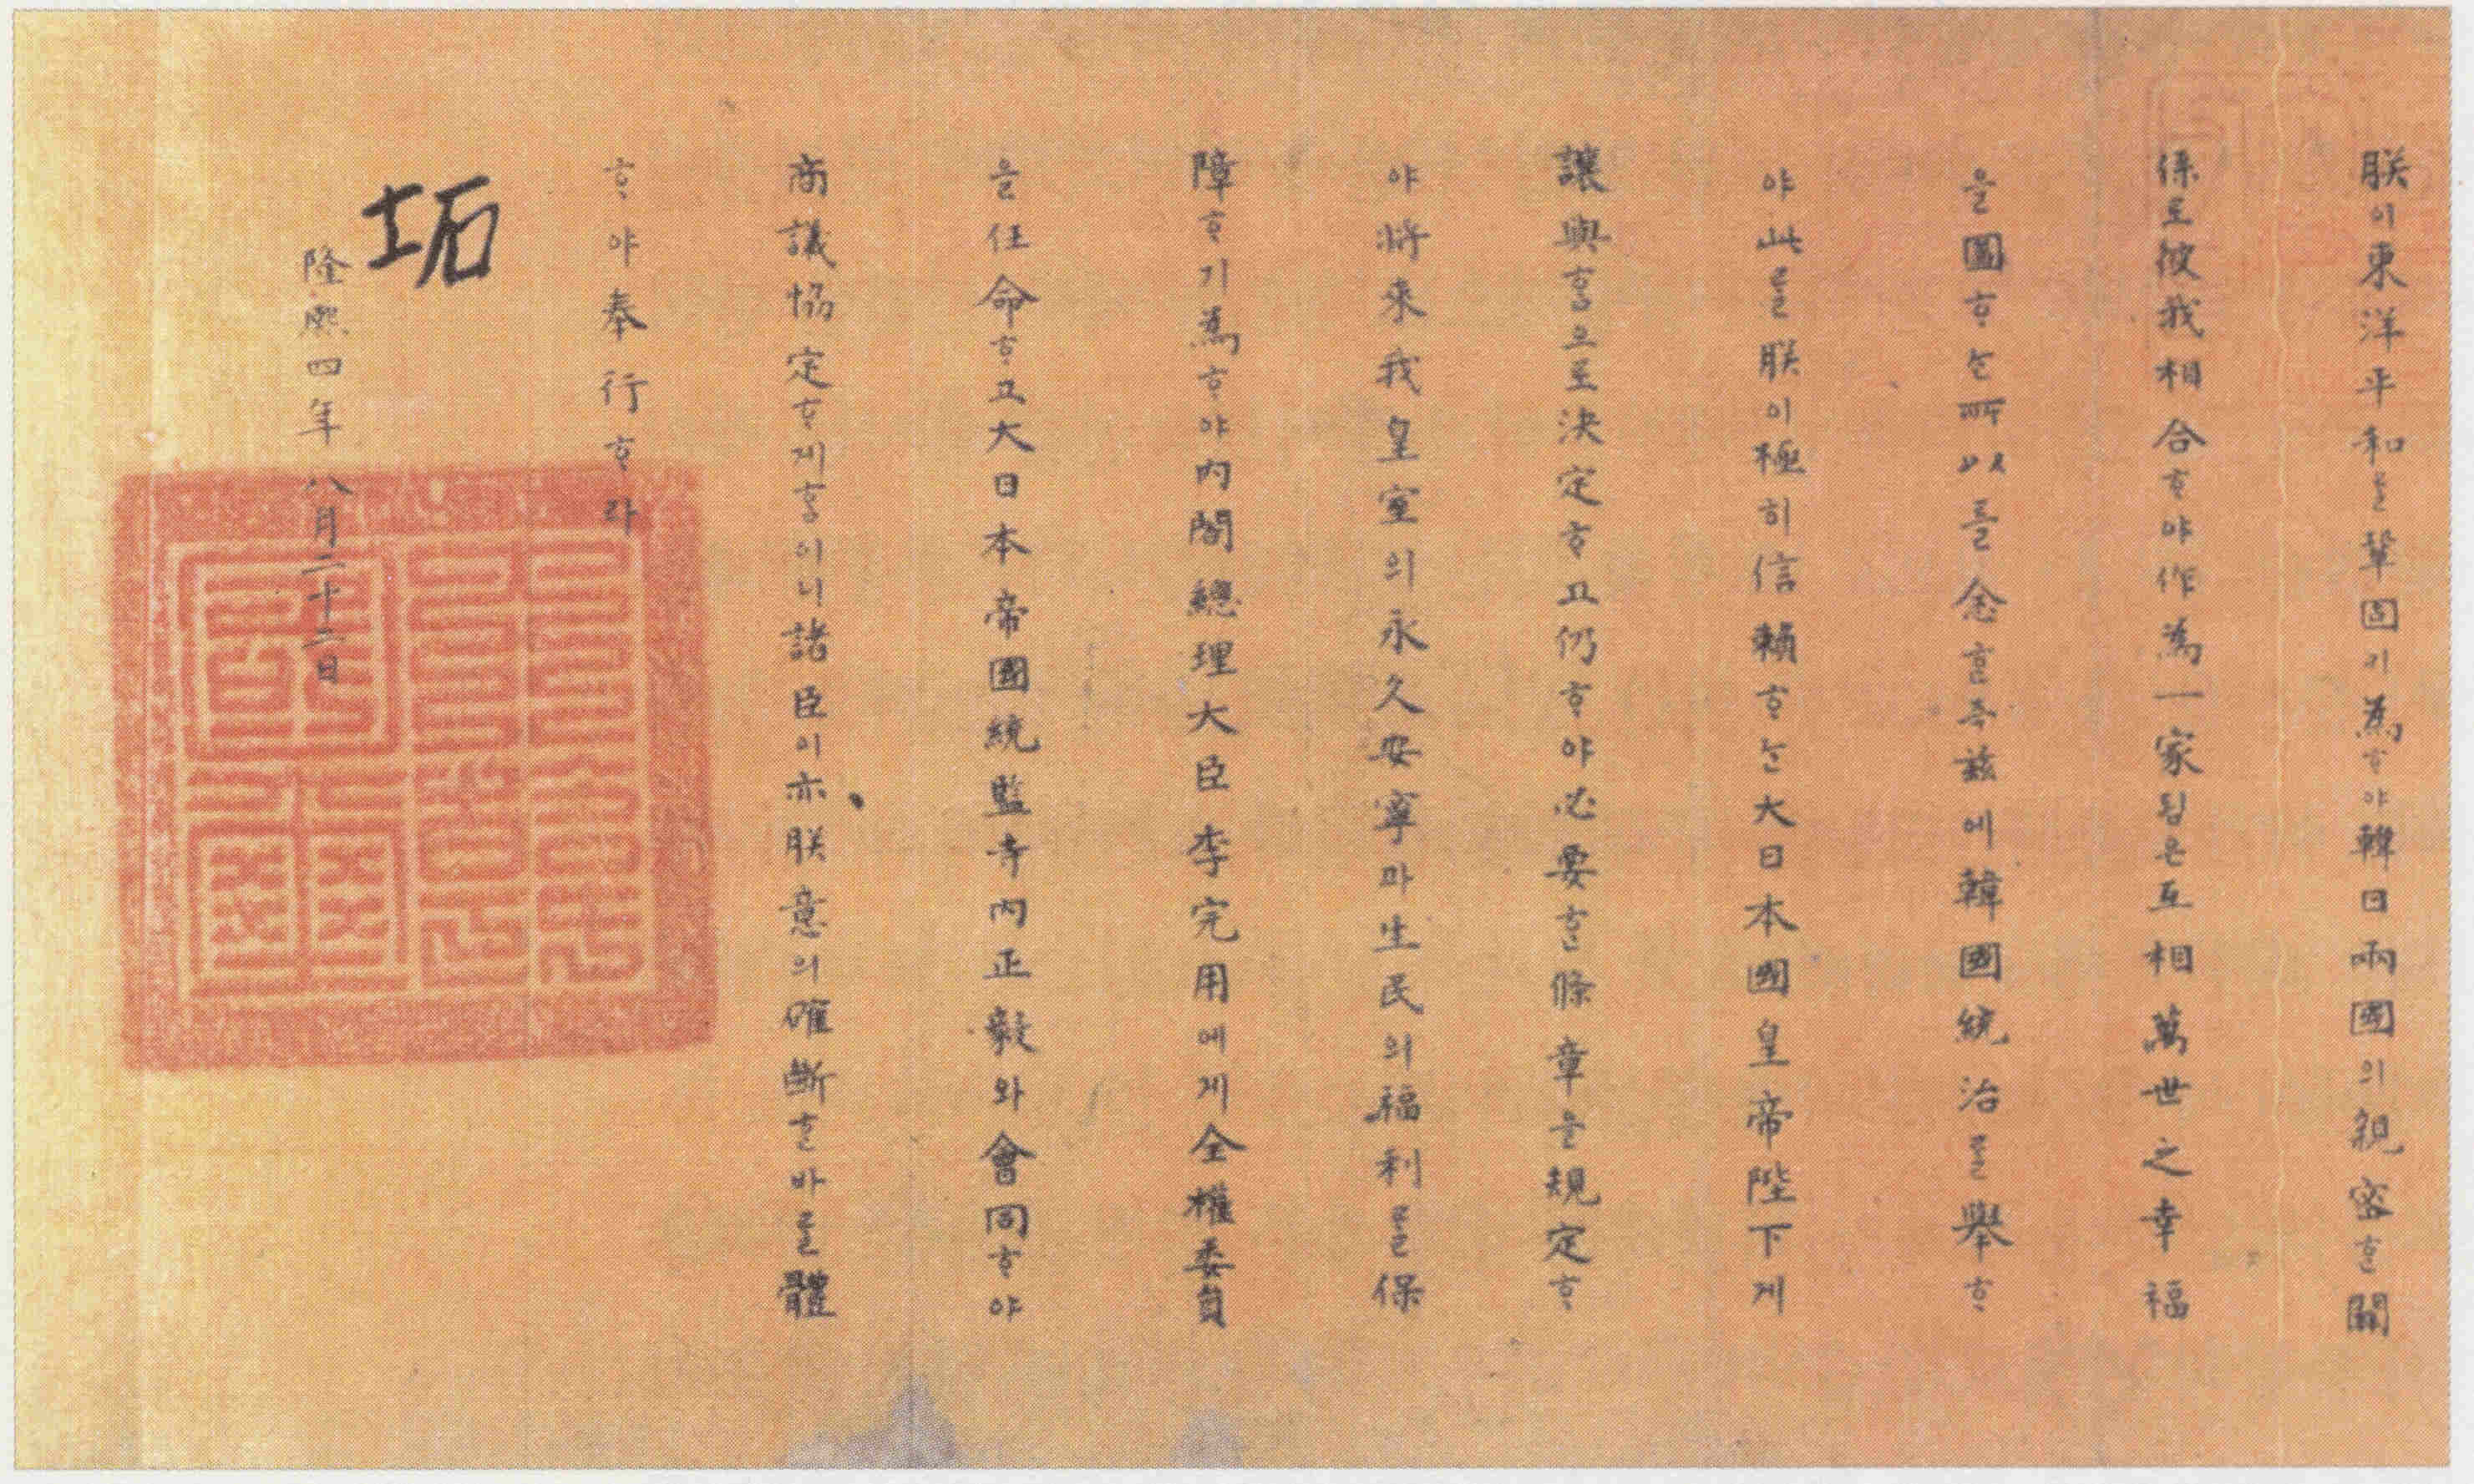 朕이東洋平和를鞏固기爲ᄒᆞ야韓日兩國의親密ᄒᆞᆫ關
係로彼我相合ᄒᆞ야作爲一家됨은互相萬世之幸福
을圖ᄒᆞᄂᆞᆫ所以를念ᄒᆞᆷ즉玆에韓國統治를擧ᄒᆞ
야此를朕이極히信賴ᄒᆞᄂᆞᆫ大日本國皇帝陛下게
讓與ᄒᆞᆷ으로決定ᄒᆞ고仍ᄒᆞ야必要ᄒᆞᆫ條章을規定ᄒᆞ
야將來我皇室의永久安寧과生民의福利를保
障ᄒᆞ기爲ᄒᆞ야內閣總理大臣李完用에게全權委員
을任命ᄒᆞ고大日本帝國統監寺內正毅와會同ᄒᆞ야
商議協定ᄒᆞ게ᄒᆞᆷ이니諸臣이亦朕意의確斷ᄒᆞᆫ바를體
ᄒᆞ야奉行ᄒᆞ라
坧
隆熙四年八月二十二日